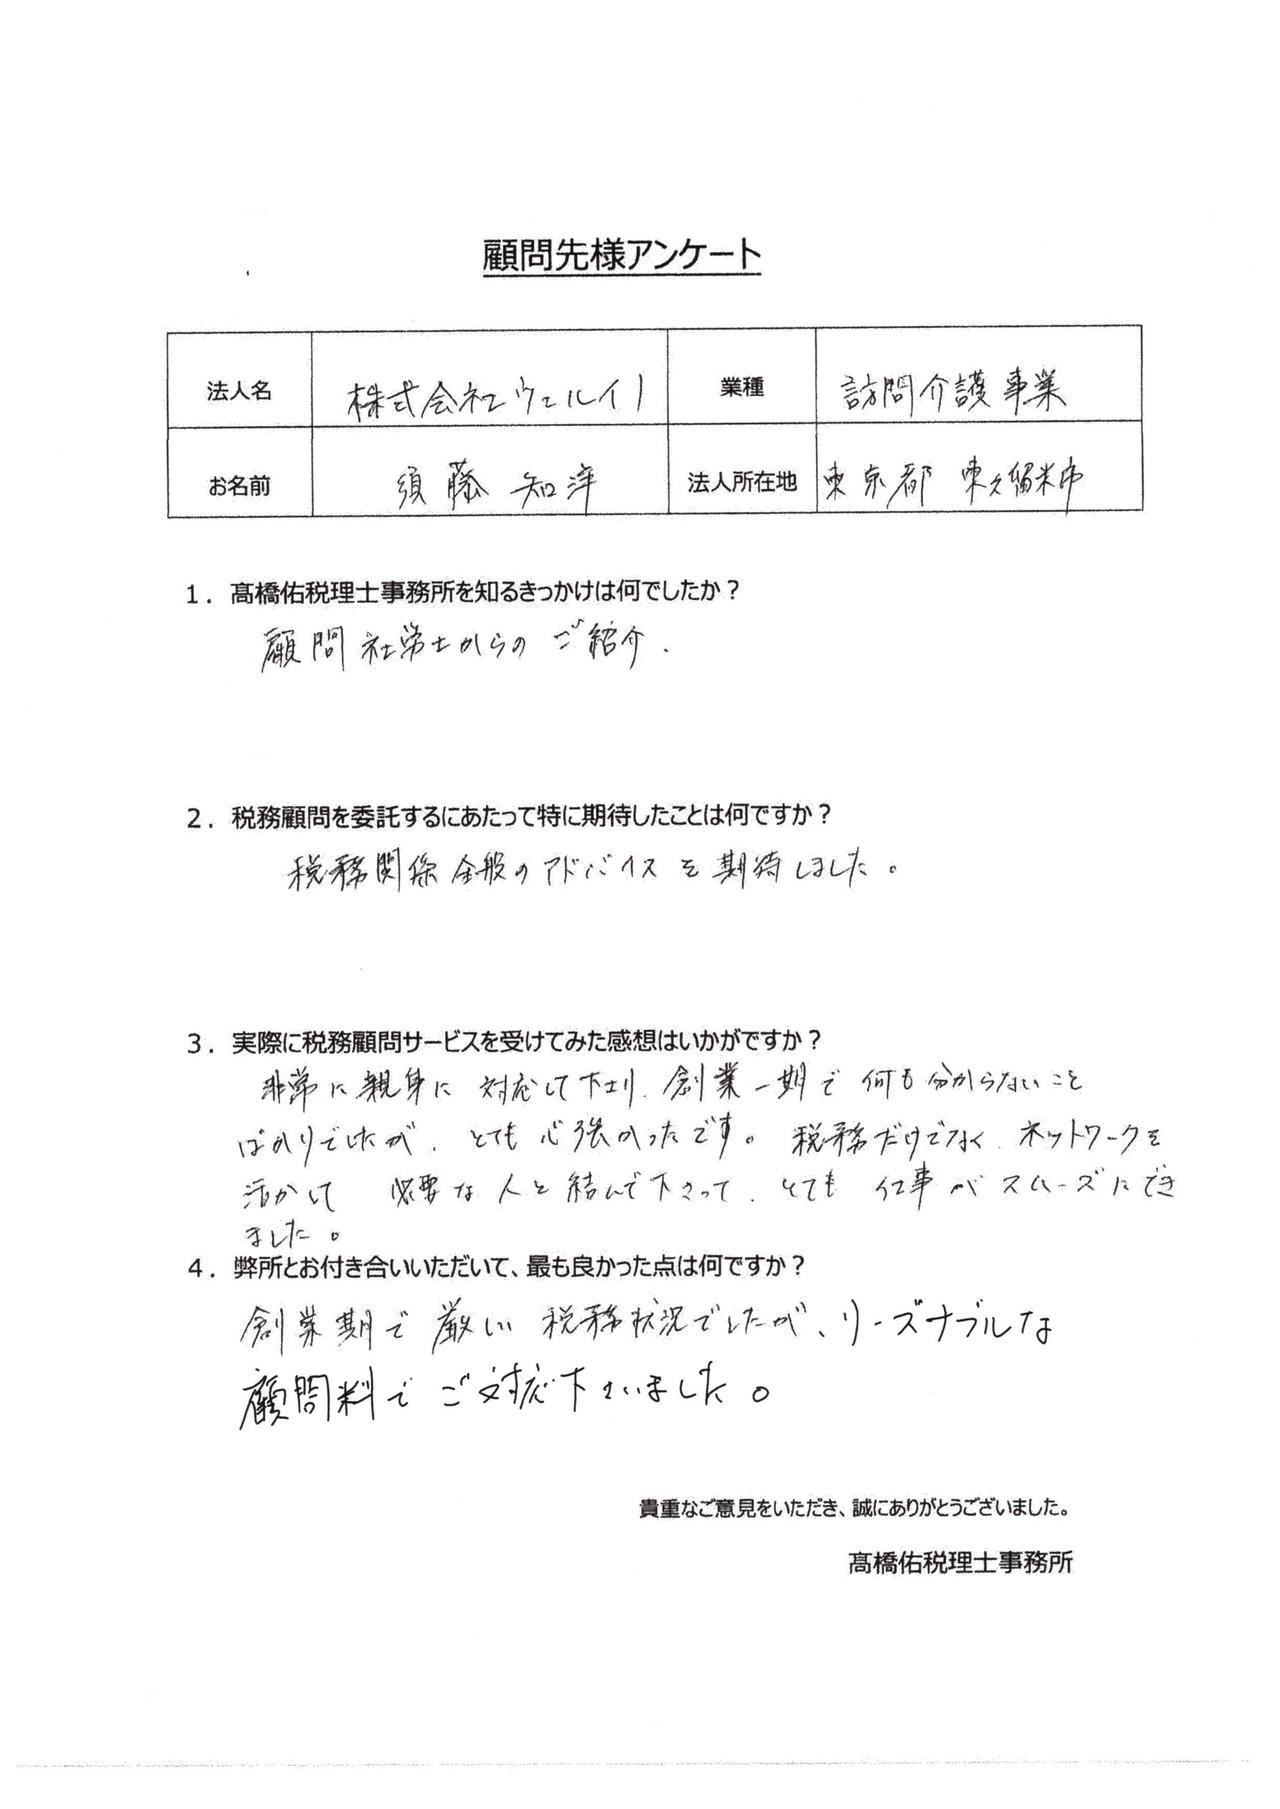 顧問先様アンケート
法人名 株式会社ウェルイノ 業種 訪問介護事業
お名前 須藤 知洋 法人所在地 東京都 東久留米市
1. 髙橋佑税理士事務所を知るきっかけは何でしたか？
顧問社労士からのご紹介.
2. 税務顧問を委託するにあたって特に期待したことは何ですか？
税務関係全般のアドバイスを期待しました。
3. 実際に税務顧問サービスを受けてみた感想はいかがですか？
非常に親身に対応して下さり、創業一期で何も分からないこと
ばかりでしたが、とても心強かったです。税務だけでなく、ネットワークを
活かして 必要な人と結んで下さって、とても仕事がスムーズにでき
ました。
4. 弊所とお付き合いいただいて、最も良かった点は何ですか？
創業期で厳しい税務状況でしたが、リーズナブルな
顧問料でご対応下さいました。
貴重なご意見をいただき、誠にありがとうございました。
髙橋佑税理士事務所